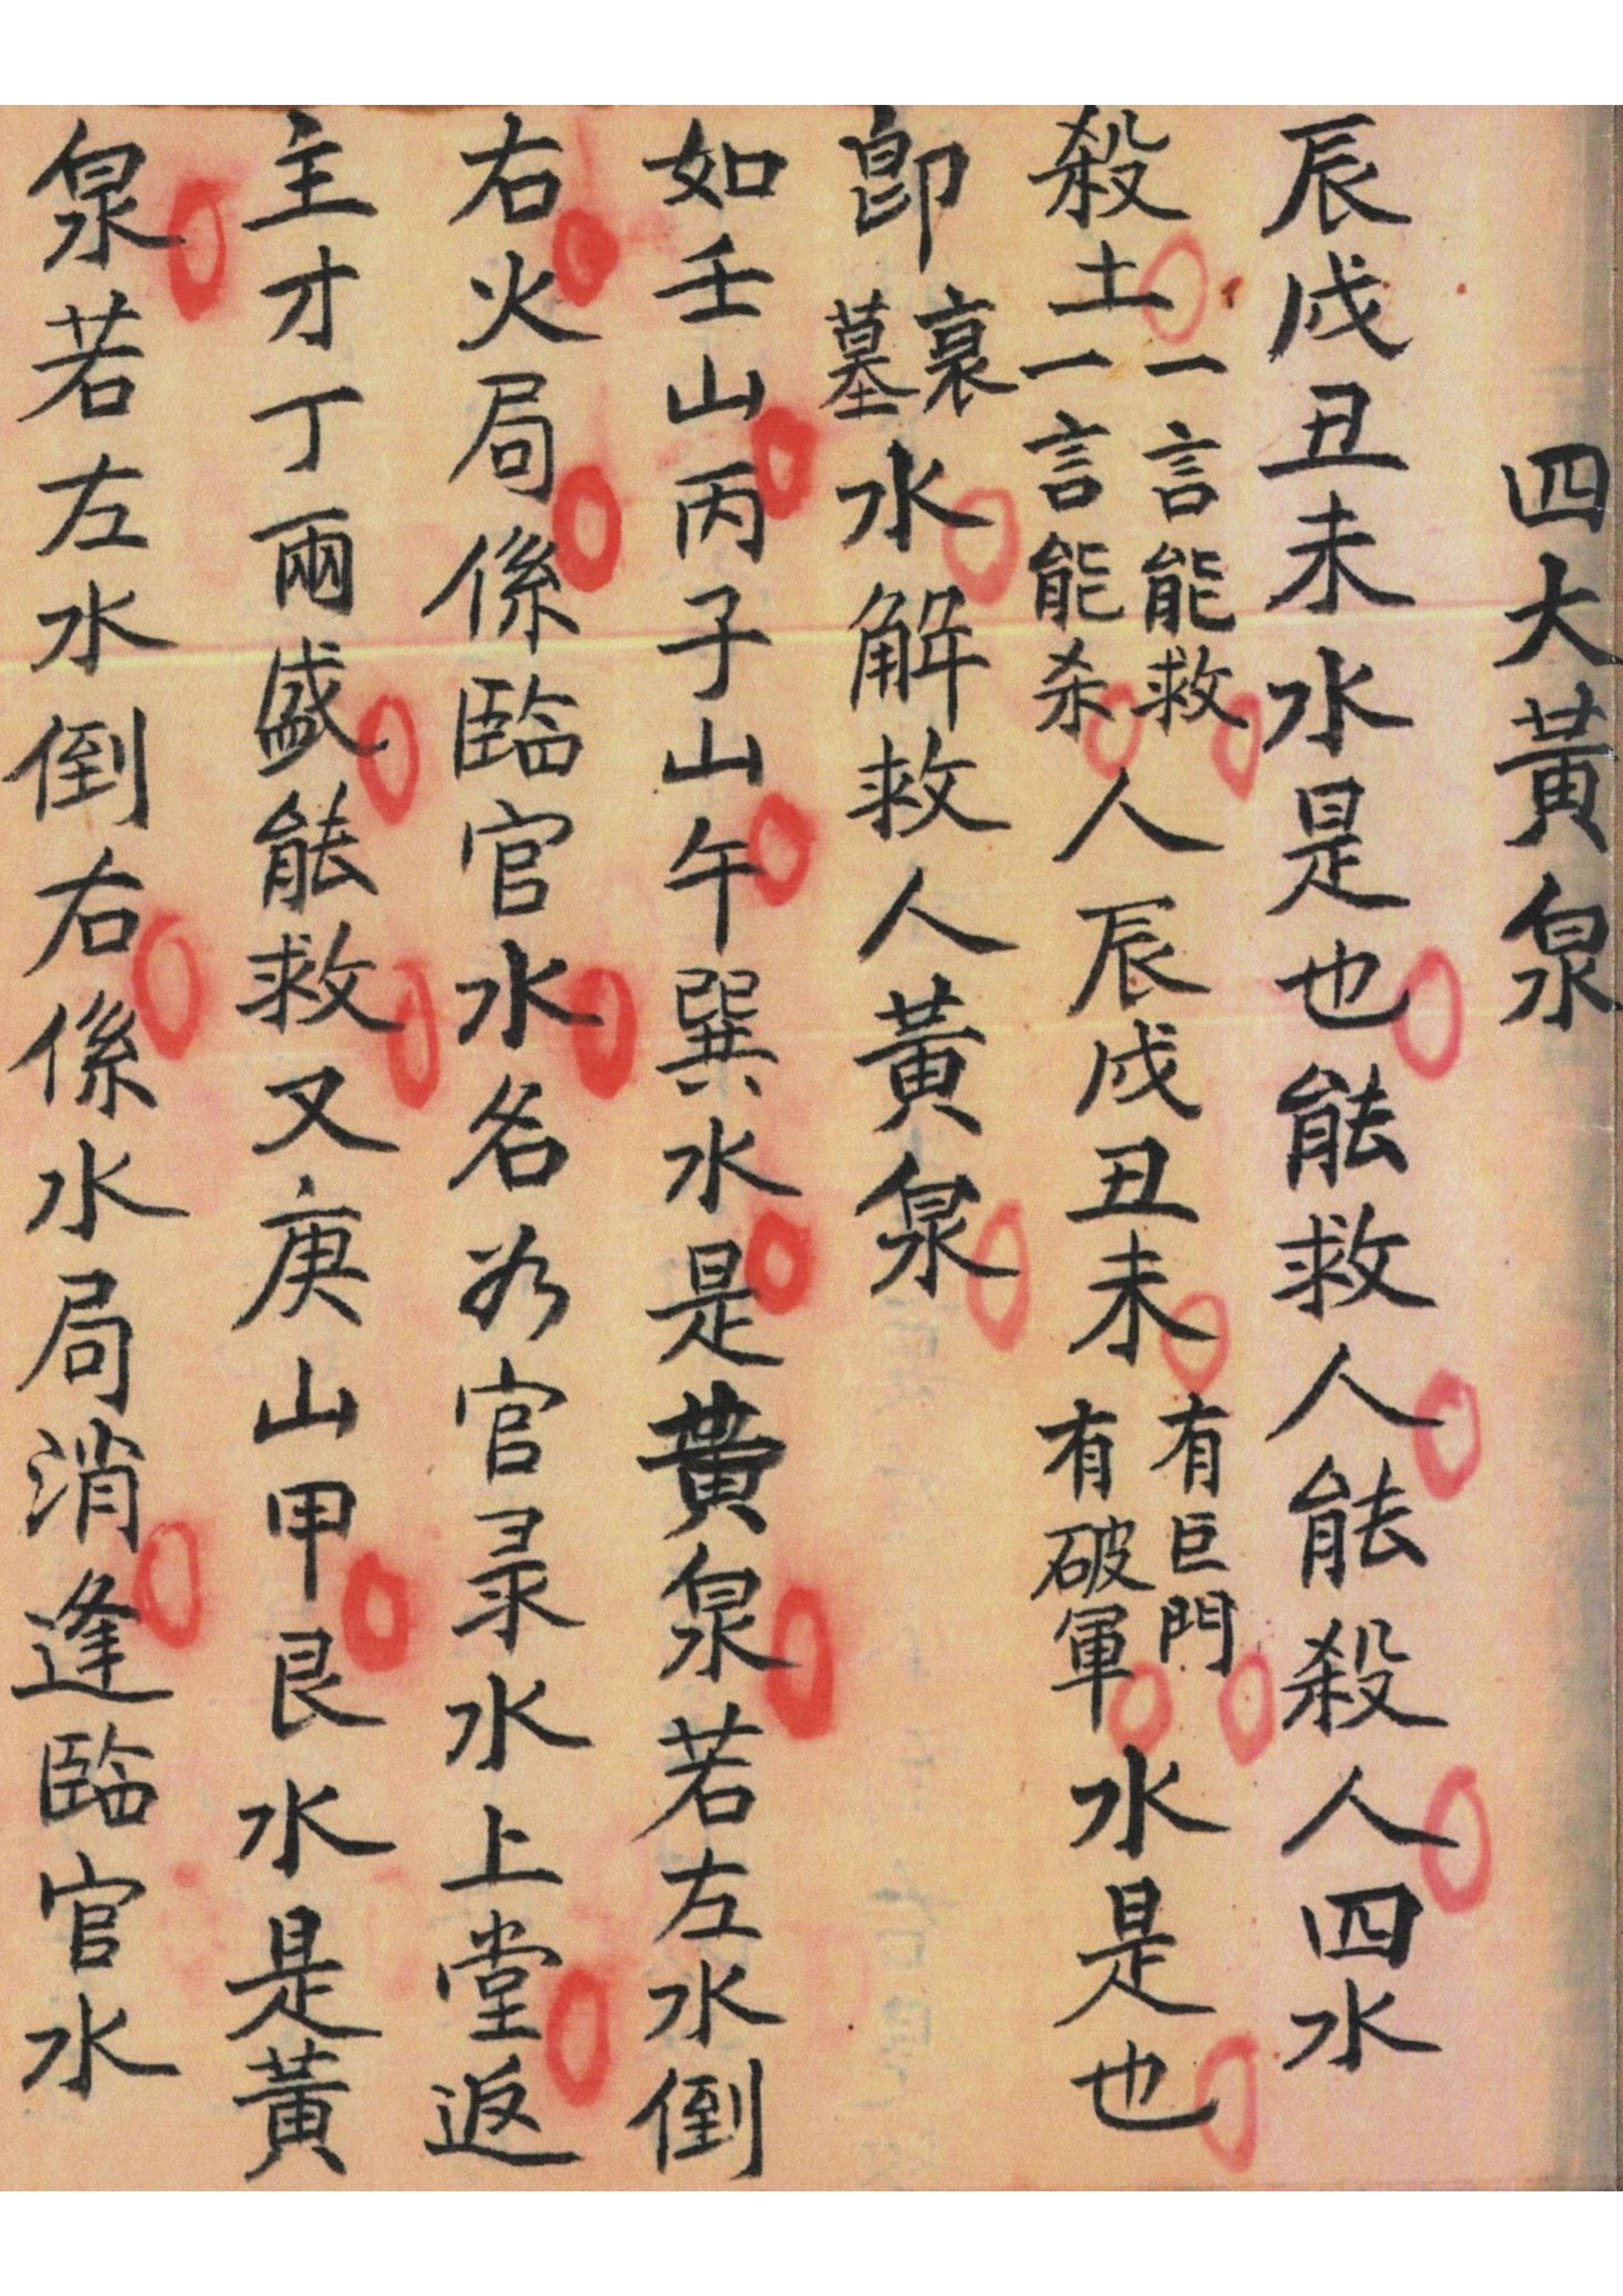 四大黃泉
辰戌丑未水是也能救人能殺人四水
殺土一言能救一言能杀人辰戌丑未有巨門有破軍水是也
即衰墓水解救人黃泉
如壬山丙子山午巽水是黃泉若左水倒
右火局係臨官水名為官录水上堂返
主才丁兩盛能救又庚山甲艮水是黃
泉若左水倒右係水局消逢臨官水